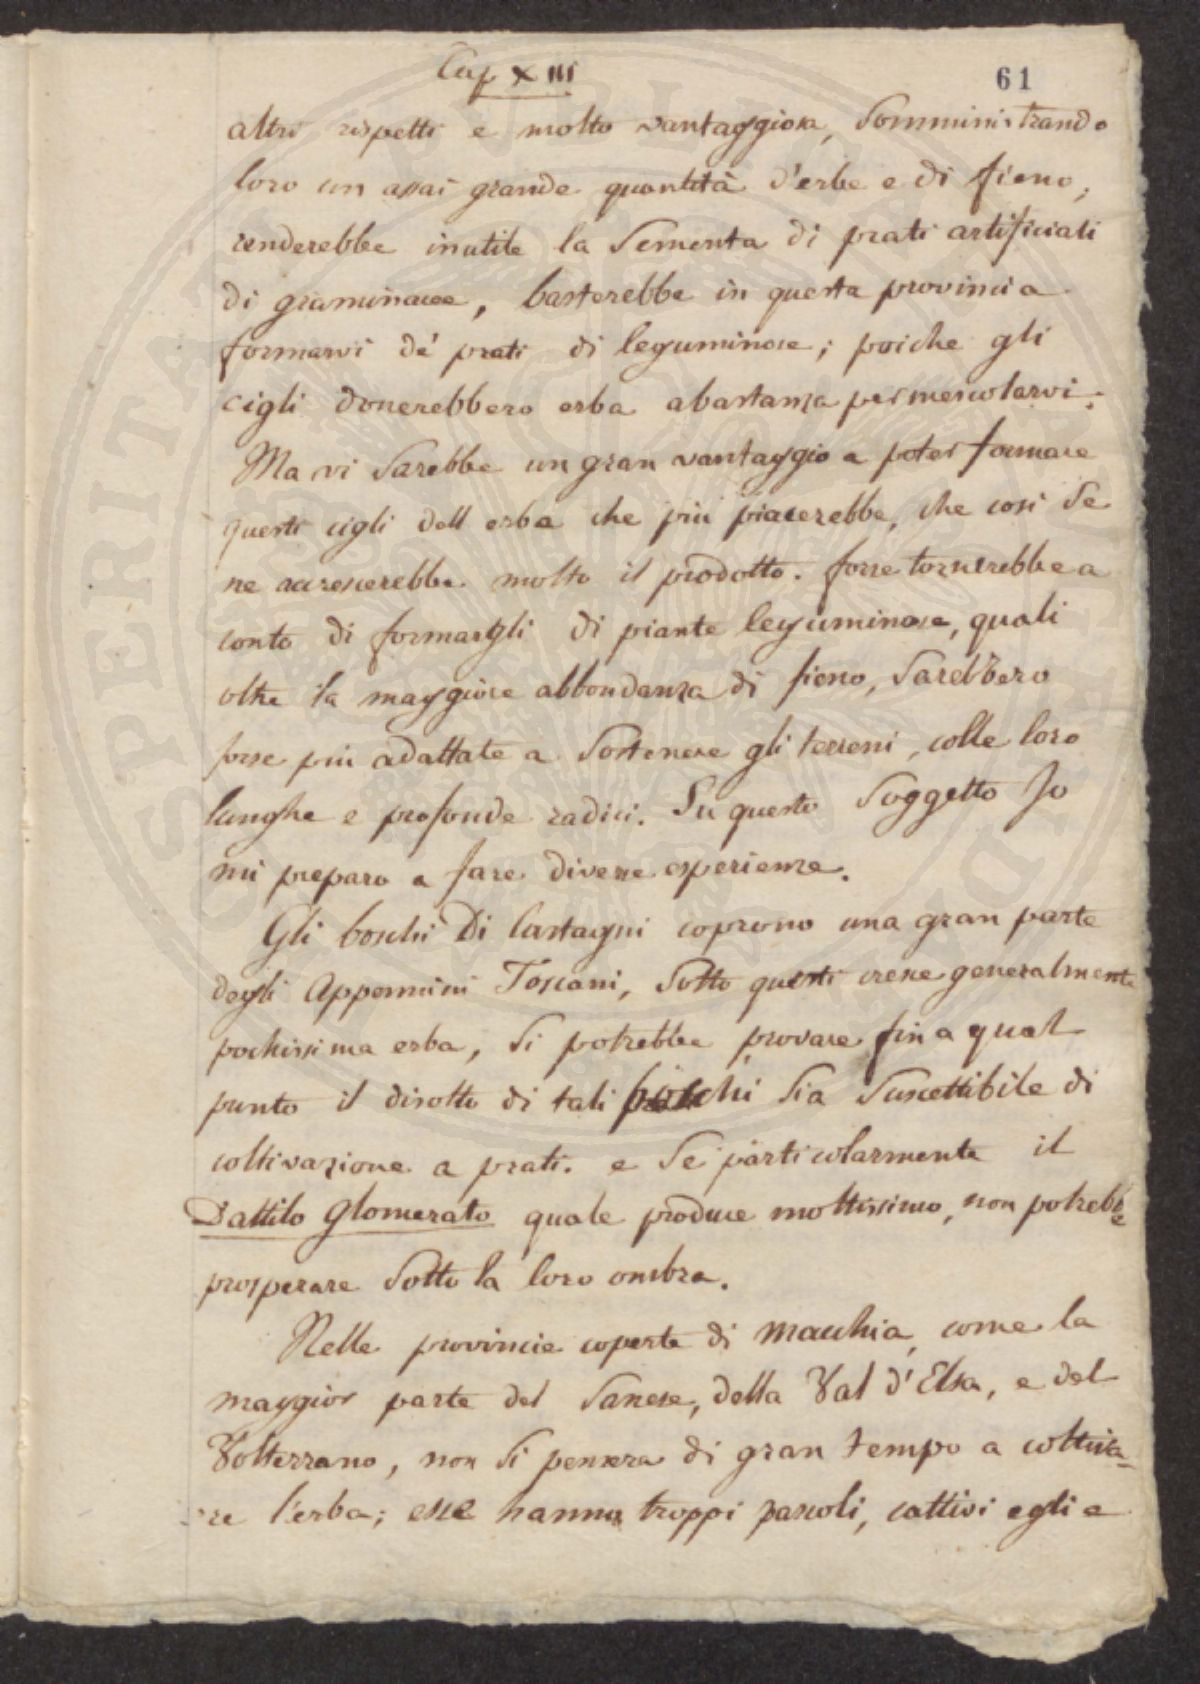 Cap XIII
61
altri rispetti e molto vantaggiosa, Somministrando
loro un assai grande quantità d'erbe e di fieno,
renderebbe inutile la Sementa di prati artificiali
di graminacee, basterebbe in questa provincia
formarvi de' prati di leguminose; poiche gli
cigli donerebbero erba abastanza per mescolarvi.
Ma vi Sarebbe un gran vantaggio a poter formare
questi cigli dell erba che più piacerebbe, che cosi Se
ne accrescerebbe molto il prodotto. forse tornerebbe a
conto di formargli di piante leguminose, quali
oltre la maggiore abbondanza di fieno, Sarebbero
forse più adattate a Sostenere gli terreni, colle loro
lunghe e profonde radici. Su questo Soggetto Jo
mi preparo a fare diverse esperienze.
Gli boschi Di Castagni coprono una gran parte
degli Appennini Toscani, Sotto questi cresce generalmente
pochissima erba, Si potrebbe provare fin a qual
punto il disotto di tali boschi Sia Suscettibile di
coltivazione a prati. e Se particolarmente il
Dattilo Glomerato quale produce moltissimo, non potrebbe
prosperare Sotto la loro ombra.
Nelle provincie coperte di Macchia, come la
maggior parte del Sanese, della Val d'Elsa, e del
Volterrano, non Si pensera di gran tempo a coltiva=
re l'erba; esse hanno troppi pascoli, cattivi egli e
SPERITAT
PUBLICA